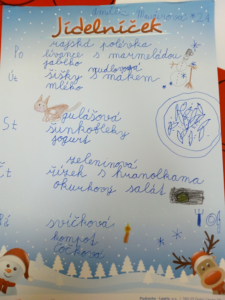 Jídelníček
Po rajská polévka
lívance s marmeládou
jablko
nudlová
Út šišky s mákem
mléko
gulášová
St šunkofleky
jogurt
zeleninová
Čt řízek s hranolkama
okurkový salát
svíčková
kompot
čočková